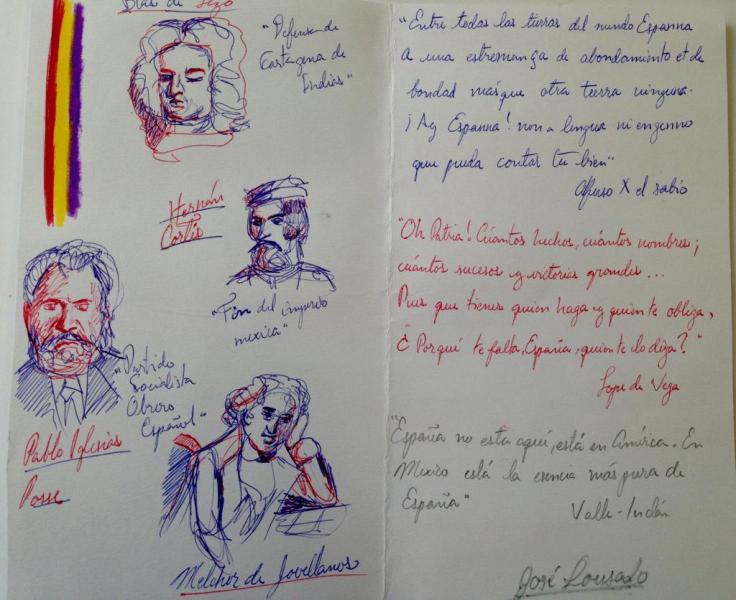 Blas de Lezo
"Defensa de
Cartagena de
Indias"
Hernán
Cortés
"Fin del imperio
mexica"
"Partido
Socialista
Obrero
Español"
Pablo Iglesias
Posse
Melchor de Jovellanos
"Entre todas las tierras del mundo Espanna
a una estremança de abondamiento et de
bondad mas que otra tierra ninguna.
¡Ay Espanna! non a lengua ni engenno
que pueda contar tu bien"
Alfonso X el sabio
"Oh Patria! Cuántos hechos, cuántos nombres;
cuántos sucesos y victorias grandes...
Pues que tienes quien haga y quien te obliga,
¿Porqué te falta, España, quien te lo diga?"
Lope de Vega
"España no esta aquí, está en América. En
Mexico está la esencia más pura de
España"
Valle-Inclán
José Lousado